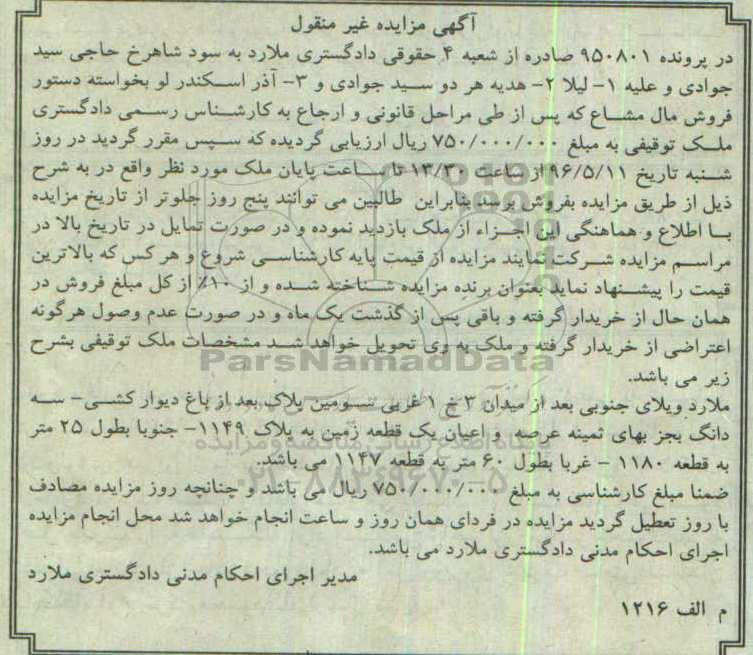 آگهی مزایده غیر منقول
در پرونده ۹۵۰۸۰۱ صادره از شعبه ۴ حقوقی دادگستری ملارد به سود شاهرخ حاجی سید
جوادی و علیه ۱- لیلا ۲- هدیه هر دو سید جوادی و ۳- آذر اسکندر لو بخواسته دستور
فروش مال مشاع که پس از طی مراحل قانونی و ارجاع به کارشناس رسمی دادگستری
ملک توقیفی به مبلغ ۷۵۰/۰۰۰/۰۰۰ ریال ارزیابی گردیده که سپس مقرر گردید در روز
شنبه تاریخ ۹۶/۵/۱۱ از ساعت ۱۳/۳۰ تا ساعت پایان ملک مورد نظر واقع در به شرح
ذیل از طریق مزایده بفروش برسد بنابراین طالبین می توانند پنج روز جلوتر از تاریخ مزایده
با اطلاع و هماهنگی این اجراء از ملک بازدید نموده و در صورت تمایل در تاریخ بالا در
مراسم مزایده شرکت نمایند مزایده از قیمت پایه کارشناسی شروع و هر کس که بالاترین
قیمت را پیشنهاد نماید بعنوان برنده مزایده شناخته شده و از ۱۰٪ از کل مبلغ فروش در
همان حال از خریدار گرفته و باقی پس از گذشت یک ماه و در صورت عدم وصول هرگونه
اعتراضی از خریدار گرفته و ملک به وی تحویل خواهد شد مشخصات ملک توقیفی بشرح
زیر می باشد.
ParsNamadData
ملارد ویلای جنوبی بعد از میدان ۳ خ ۱ غربی سومین پلاک بعد از باغ دیوار کشی- سه
دانگ بجز بهای ثمینه عرصه و اعیان یک قطعه زمین به پلاک ۱۱۴۹- جنوبا بطول ۲۵ متر
به قطعه ۱۱۸۰ - غربا بطول ۶۰ متر به قطعه ۱۱۴۷ می باشد.
۰۲۱-۸۸۳۴۹۶۷۰-۵
ضمنا مبلغ کارشناسی به مبلغ ۷۵۰/۰۰۰/۰۰۰ ریال می باشد و چنانچه روز مزایده مصادف
با روز تعطیل گردید مزایده در فردای همان روز و ساعت انجام خواهد شد محل انجام مزایده
اجرای احکام مدنی دادگستری ملارد می باشد.
مدیر اجرای احکام مدنی دادگستری ملارد
م الف ۱۲۱۶